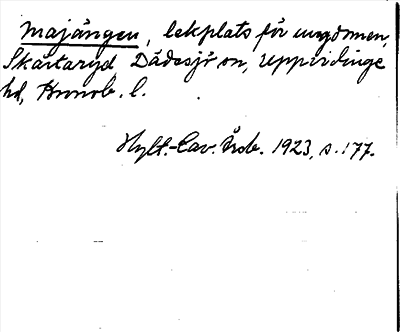 Majängen, lekplats för ungdomen,
Skårtaryd Dädesjö sn, Uppvidinge
hd, Kronob. l.
Hylt.-Cav. Årsb. 1923, s. 177.